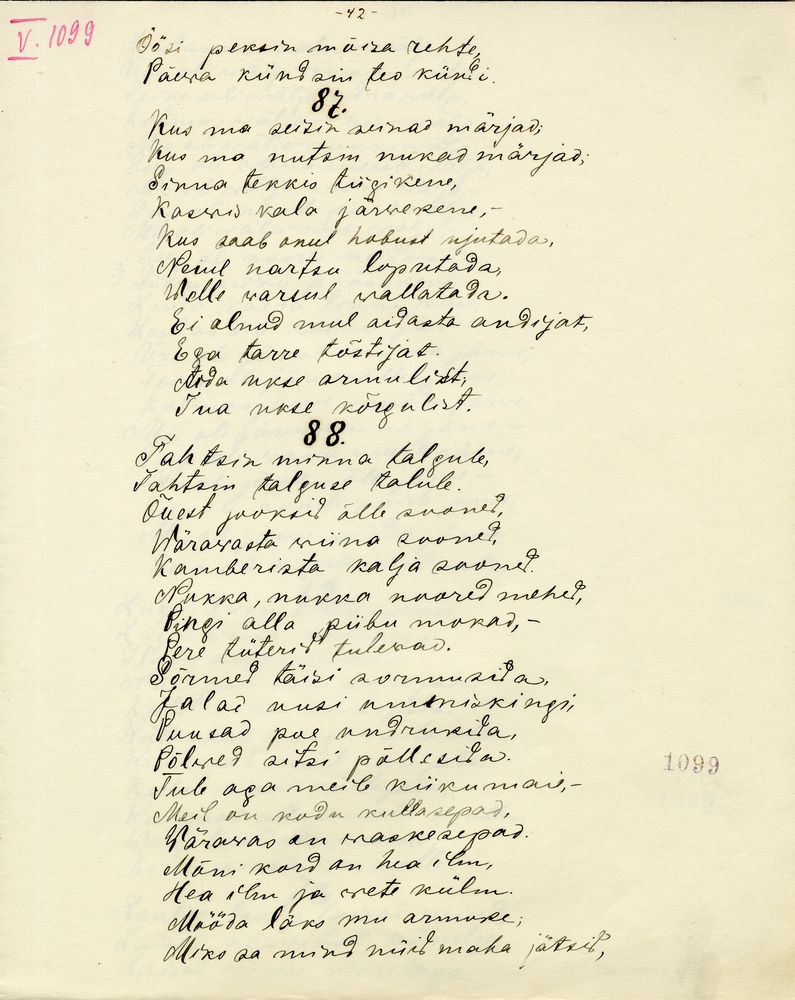 -42-
V. 1099
Öösi peksin mõisa rehte,
Päewa kündsin teo kündi.
87.
Kus ma seisin seinad märjad;
Kus ma nutsin nukad märjad;
Sinna tekkis tiigikene,
Kaswis kala järwekene,-
Kus saab onul hobust ujutada,
Neiul nartsu loputada,
Welle warsul wallatada.
Ei olnud mul aidasta andijat,
Ega tarre tõstijat.
Aida ukse armulist,
Tua ukse kõrgulist.
88.
Tahtsin minna talgule,
Tahtsin talguse talule.
Õuest jooksid õlle sooned,
Wärawasta wiina sooned,
Kamberista kalja sooned.
Nukka, nukka noored mehed,
Pingi alla piibu mokad,-
Pere tüterid tulewad.
Sõrmed täisi sormusida,
Jalad uusi ummiskingi,
Puusad pue undrukida,
Põlwed sitsi põllesida.
Tule aga meile kiikumaie,-
Meil on kodu kullasepad,
Wärawas on waskesepad.
Mõni kord on hea ilm,
Hea ilm ja wete külm.
Mööda läks mu armuke;
Miks sa mind nüid maha jätsid,
1099